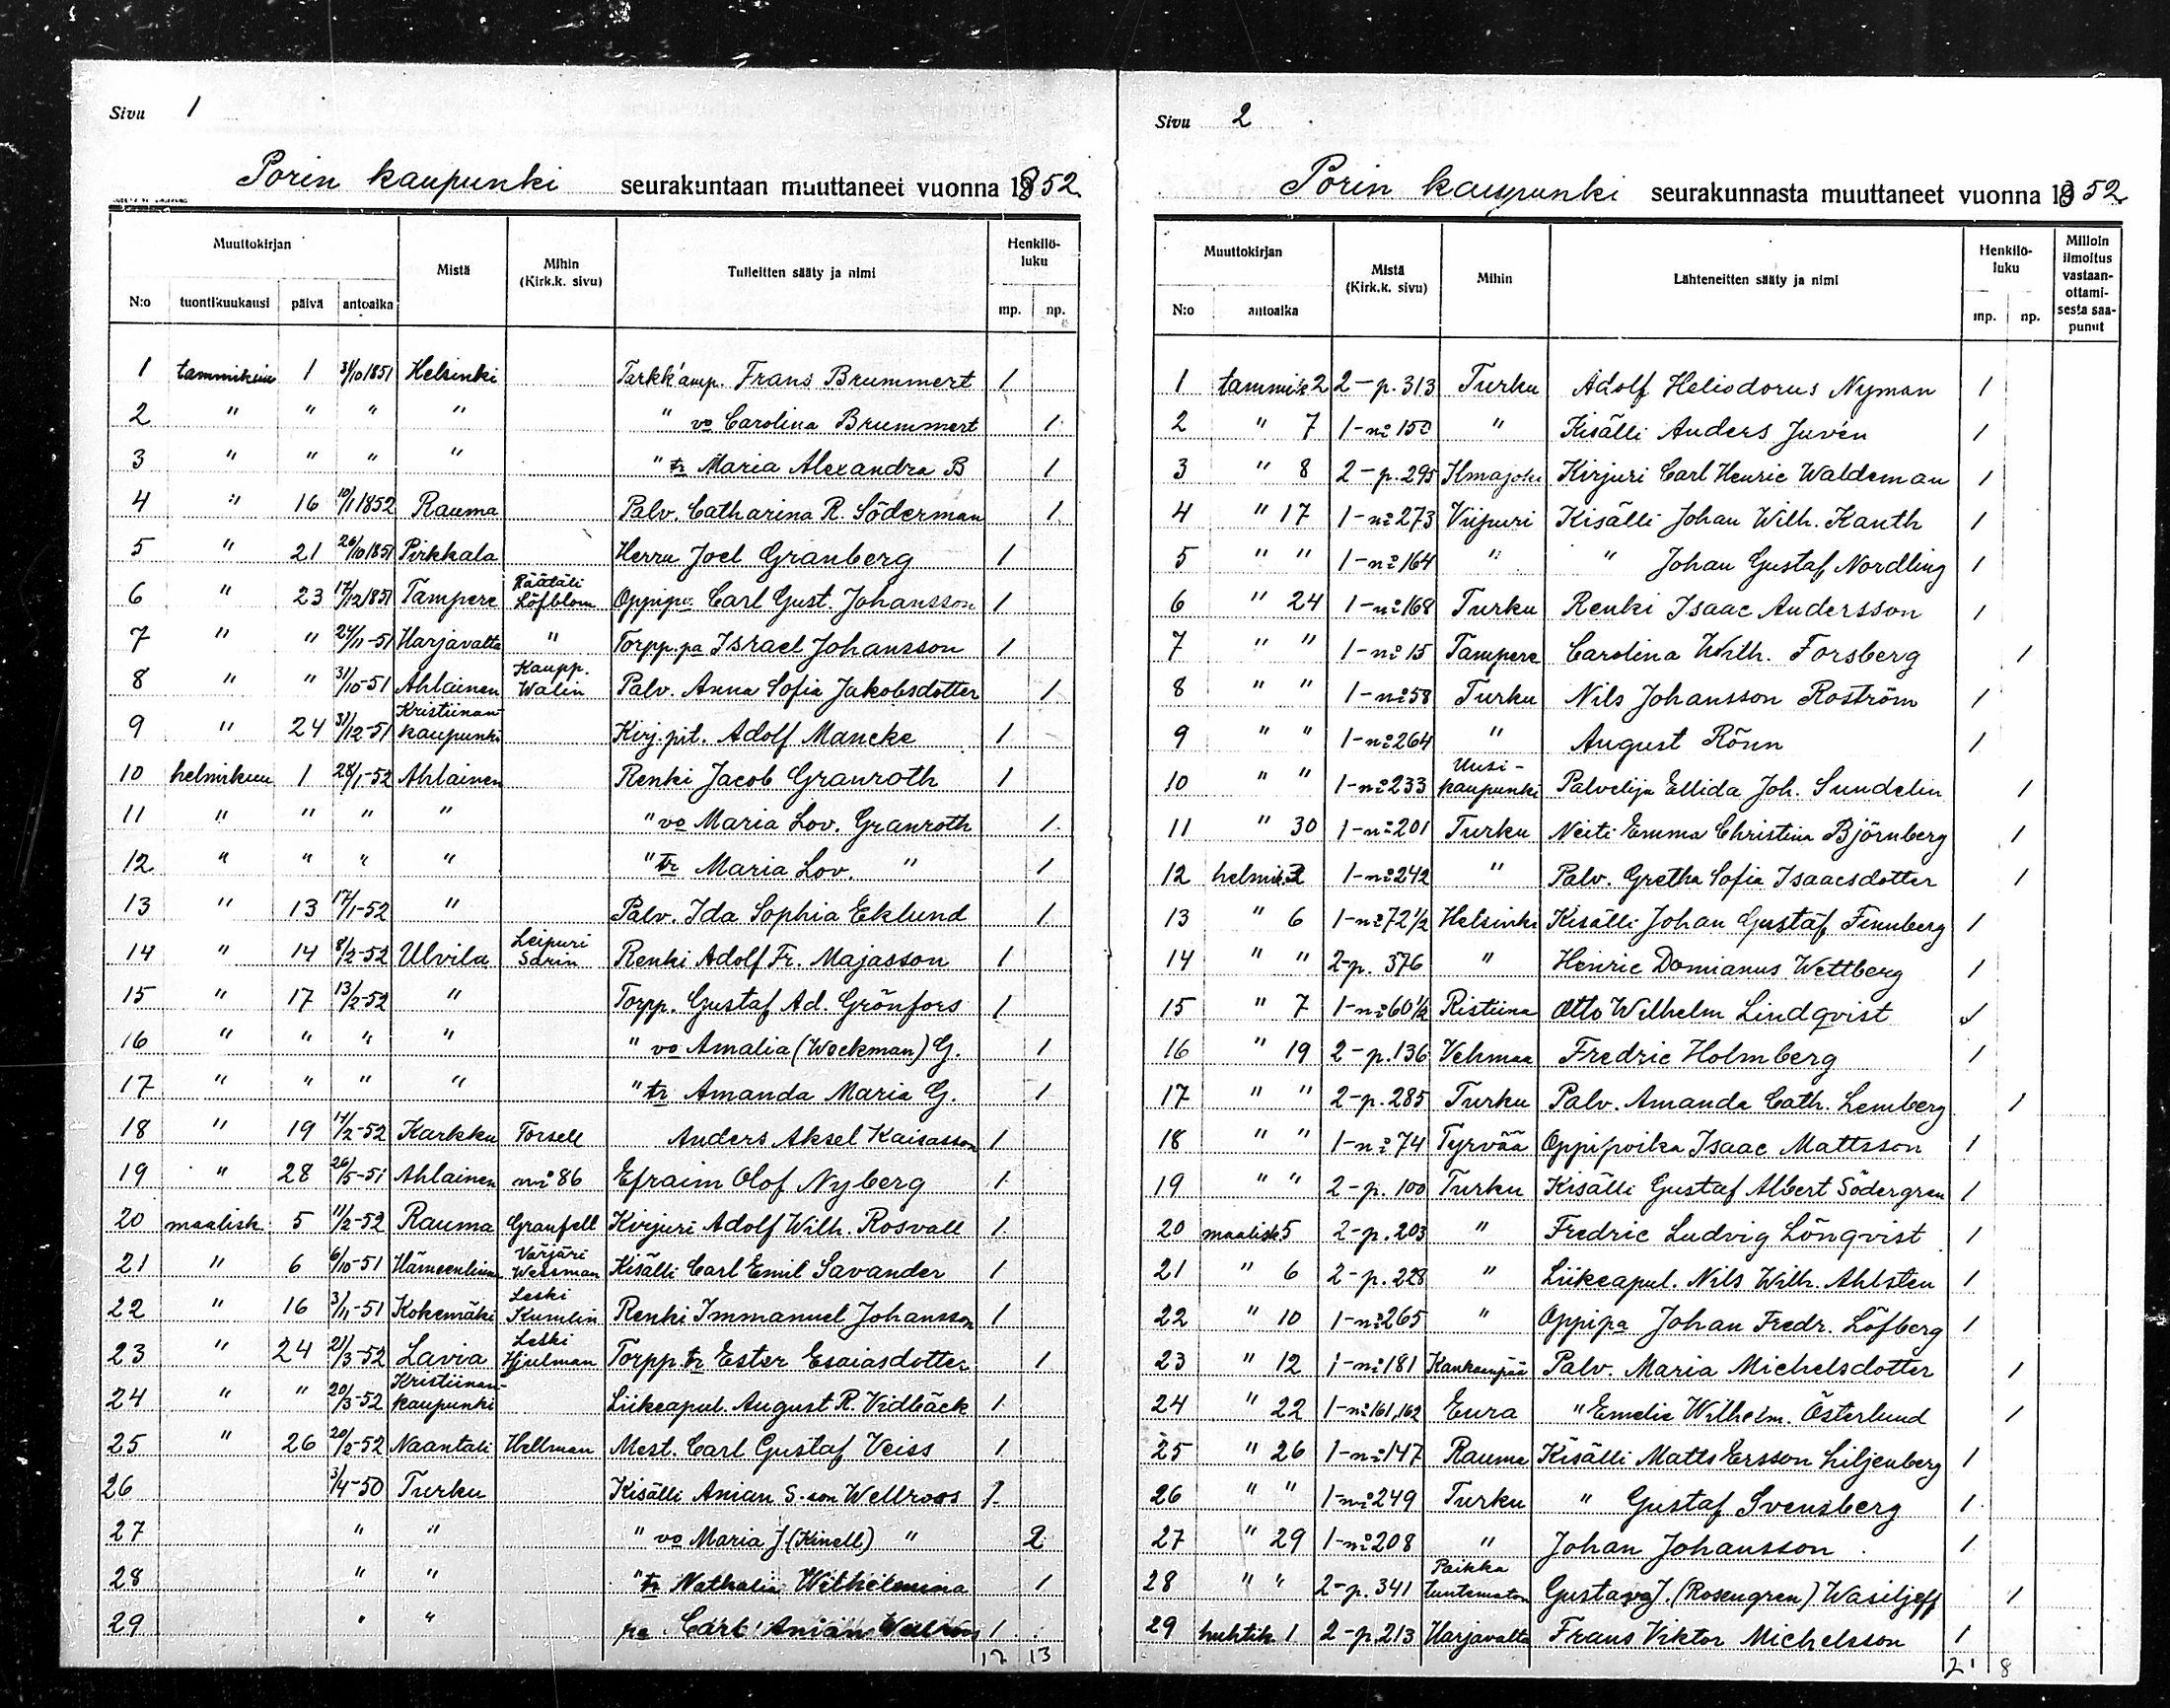 Sivu 1
Porin kaupunki seurakuntaan muuttaneet vuonna 1852
Muuttokirjan
N:o tuontikuukausi päivä antoaika
Mistä
Mihin
(Kirk.k. sivu)
Tulleitten sääty ja nimi
Henkilö-
luku
mp. np.
1 tammikuu 1 31/10 1851 Helsinki Tarkk'amp. Frans Brummert 1
2 " " " " " vo Carolina Brummert 1
3 " " " " " tr Maria Alexandra B 1
4 " 16 10/1 1852 Rauma Palv. Catharina R. Söderman 1
5 " 21 26/10 1851 Pirkkala Herra Joel Granberg 1
6 " 23 17/12 1851 Tampere Räätäli Löfblom Oppipo. Carl Gust. Johansson 1
7 " " 24/11-51 Harjavalta " Torpp.pa Israel Johansson 1
8 " " 31/10-51 Ahlainen Kaupp. Walin Palv. Anna Sofia Jakobsdotter 1
9 " 24 31/12-51 Kristiinan-kaupunki Kirj.pit. Adolf Mancke 1
10 helmikuu 1 28/1-52 Ahlainen Renki Jacob Granroth 1
11 " " " " " vo Maria Lov. Granroth 1
12 " " " " " tr Maria Lov. " 1
13 " 13 17/1-52 " Palv. Ida Sophia Eklund 1
14 " 14 8/2-52 Ulvila Leipuri Sarin Renki Adolf Fr. Majasson 1
15 " 17 13/2-52 " Torpp. Gustaf Ad. Grönfors 1
16 " " " " " vo Amalia (Weckman) G. 1
17 " " " " " tr Amanda Maria G. 1
18 " 19 17/2-52 Karkku Torsell Anders Aksel Kaisasson 1
19 " 28 26/5-51 Ahlainen no 86 Efraim Olof Nyberg 1
20 maalisk. 5 11/2-52 Rauma Granfell Kirjuri Adolf Wilh. Rosvall 1
21 " 6 6/10-51 Hämeenlinna Värjäri Wessman Kisälli Carl Emil Savander 1
22 " 16 3/11-51 Kokemäki Leski Kumlin Renki Immanuel Johansson 1
23 " 24 21/3-52 Lavia Leski Hjulman Torpp.tr Ester Esaiasdotter 1
24 " " 20/3-52 Kristiinan-kaupunki Liikeapul. August R. Vidbäck 1
25 " 26 20/2-52 Naantali Hellman Mest. Carl Gustaf Veiss 1
26 3/4-50 Turku Kisälli Anian S-son Wellroos 1
27 " " " vo Maria J. (Kinell) " 2
28 " " " tr Nathalia Wilhelmina 1
29 " " pa Carl Anian 1
12 13
Sivu 2
Porin kaupunki seurakunnasta muuttaneet vuonna 1852
Muuttokirjan
N:o antoaika
Mistä
(Kirk.k. sivu)
Mihin
Lähteneitten sääty ja nimi
Henkilö-
luku
mp. np.
Milloin
ilmoitus
vastaan-
ottami-
sesta saa-
punut
1 tammik 2 2-p.313 Turku Adolf Heliodorus Nyman 1
2 " 7 1-no 150 " Kisälli Anders Juvén 1
3 " 8 2-p.295 Ilmajoki Kirjuri Carl Henric Waldeman 1
4 " 17 1-no 273 Viipuri Kisälli Johan Wilh. Kanth 1
5 " " 1-no 164 " " Johan Gustaf Nordling 1
6 " 24 1-no 168 Turku Renki Isaac Andersson 1
7 " " 1-no 15 Tampere Carolina Wilh. Forsberg 1
8 " " 1-no 58 Turku Nils Johansson Roström 1
9 " " 1-no 264 " August Rönn 1
10 " " 1-no 233 Uusi-kaupunki Palvelija Ellida Joh. Sundelin 1
11 " 30 1-no 201 Turku Neiti Emma Christina Björnberg 1
12 helmik. 2 1-no 242 " Palv. Gretha Sofia Isaacsdotter 1
13 " 6 1-no 72 1/2 Helsinki Kisälli Johan Gustaf Finnberg 1
14 " " 2-p. 376 " Henric Domianus Wettberg 1
15 " 7 1-no 60 1/2 Ristiina Otto Wilhelm Lindqvist 1
16 " 19 2-p.136 Vehmaa Fredric Holmberg 1
17 " " 2-p.285 Turku Palv. Amanda Cath. Lemberg 1
18 " " 1-no 74 Tyrvää Oppipoika Isaac Mattsson 1
19 " " 2-p. 100 Turku Kisälli Gustaf Albert Södergren 1
20 maalisk 5 2-p.203 " Fredric Ludvig Lönqvist 1
21 " 6 2-p.228 " Liikeapul. Nils Wilh. Ahlsten 1
22 " 10 1-no 265 " Oppipa Johan Fredr. Löfberg 1
23 " 12 1-no 181 Kankaanpää Palv. Maria Michelsdotter 1
24 " 22 1-no 161,162 Eura " Emelie Wilhelm. Österlund 1
25 " 26 1-no 147 Rauma Kisälli Matts Ersson Liljenberg 1
26 " " 1-no 249 Turku " Gustaf Svensberg 1
27 " 29 1-no 208 " Johan Johansson 1
28 " " 2-p. 341 Paikka tuntematon Gustava J. (Rosengren) Wasiljeff 1
29 huhtik 1 2-p.213 Harjavalta Frans Viktor Michelsson 1
21 8